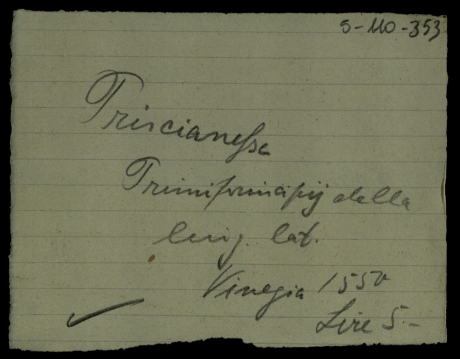 5-110-353
Priscianesse
Primi principij della
ling. lat.
Vinegia 1550
Lire 5.-